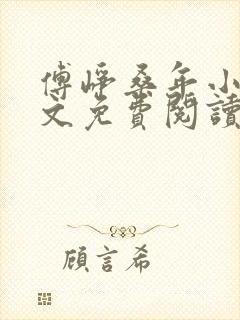 傅崢桑年小
文免費閱讀
顧言希